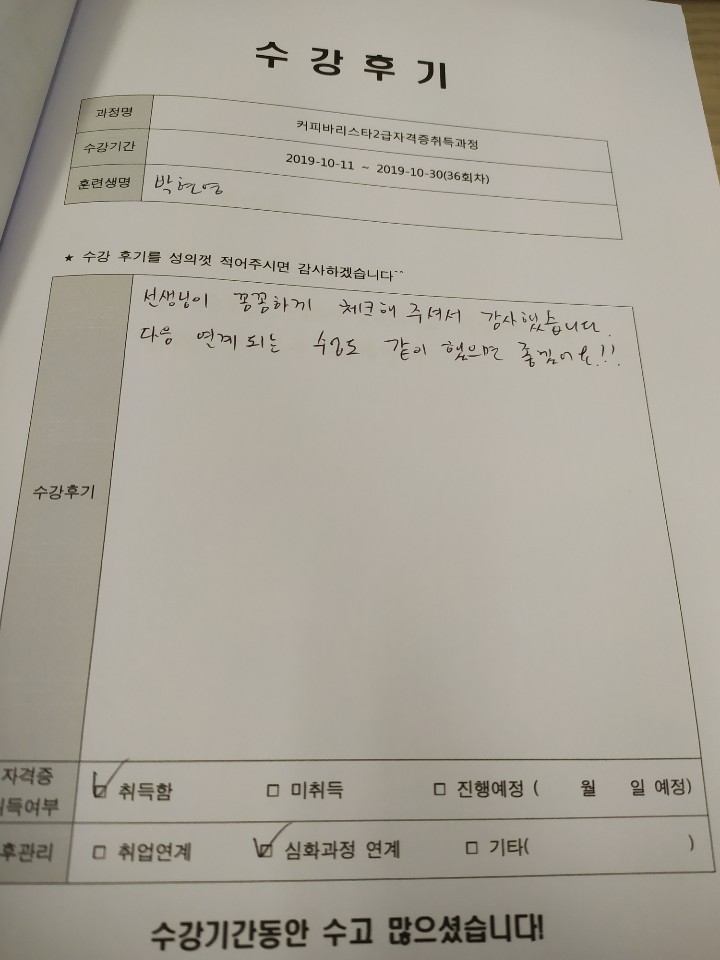 수 강 후 기
과정명 커피바리스타2급자격증취득과정
수강기간 2019-10-11 ~ 2019-10-30(36회차)
훈련생명 박현영
★ 수강 후기를 성의껏 적어주시면 감사하겠습니다^^
선생님이 꼼꼼하게 체크해 주셔서 감사했습니다.
다음 연계 되는 수업도 같이 했으면 좋겠어요!!
수강후기
자격증
득여부
☑ 취득함 □ 미취득 □ 진행예정 ( 월 일 예정)
후관리 □ 취업연계 ☑ 심화과정 연계 □ 기타( )
수강기간동안 수고 많으셨습니다!